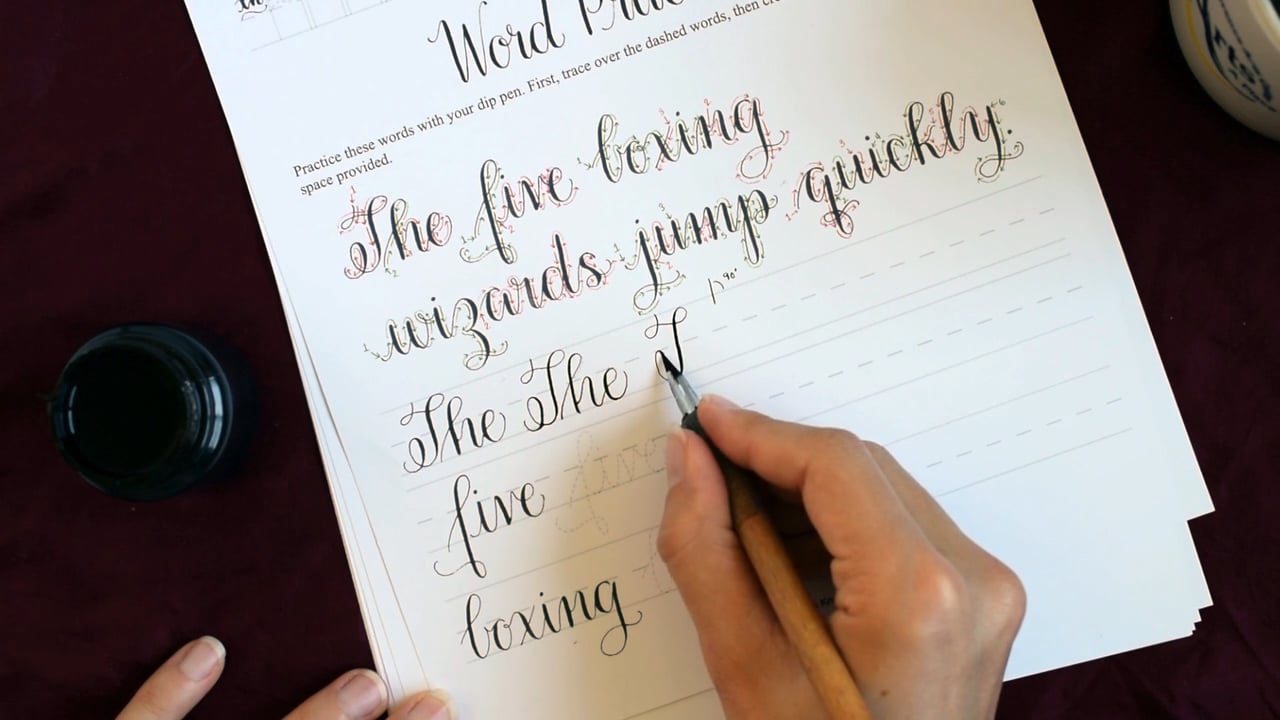 Word
Practice these words with your dip pen. First, trace over the dashed words, then
space provided.
The five boxing
wizards jump quickly.
The The T
five five
boxing